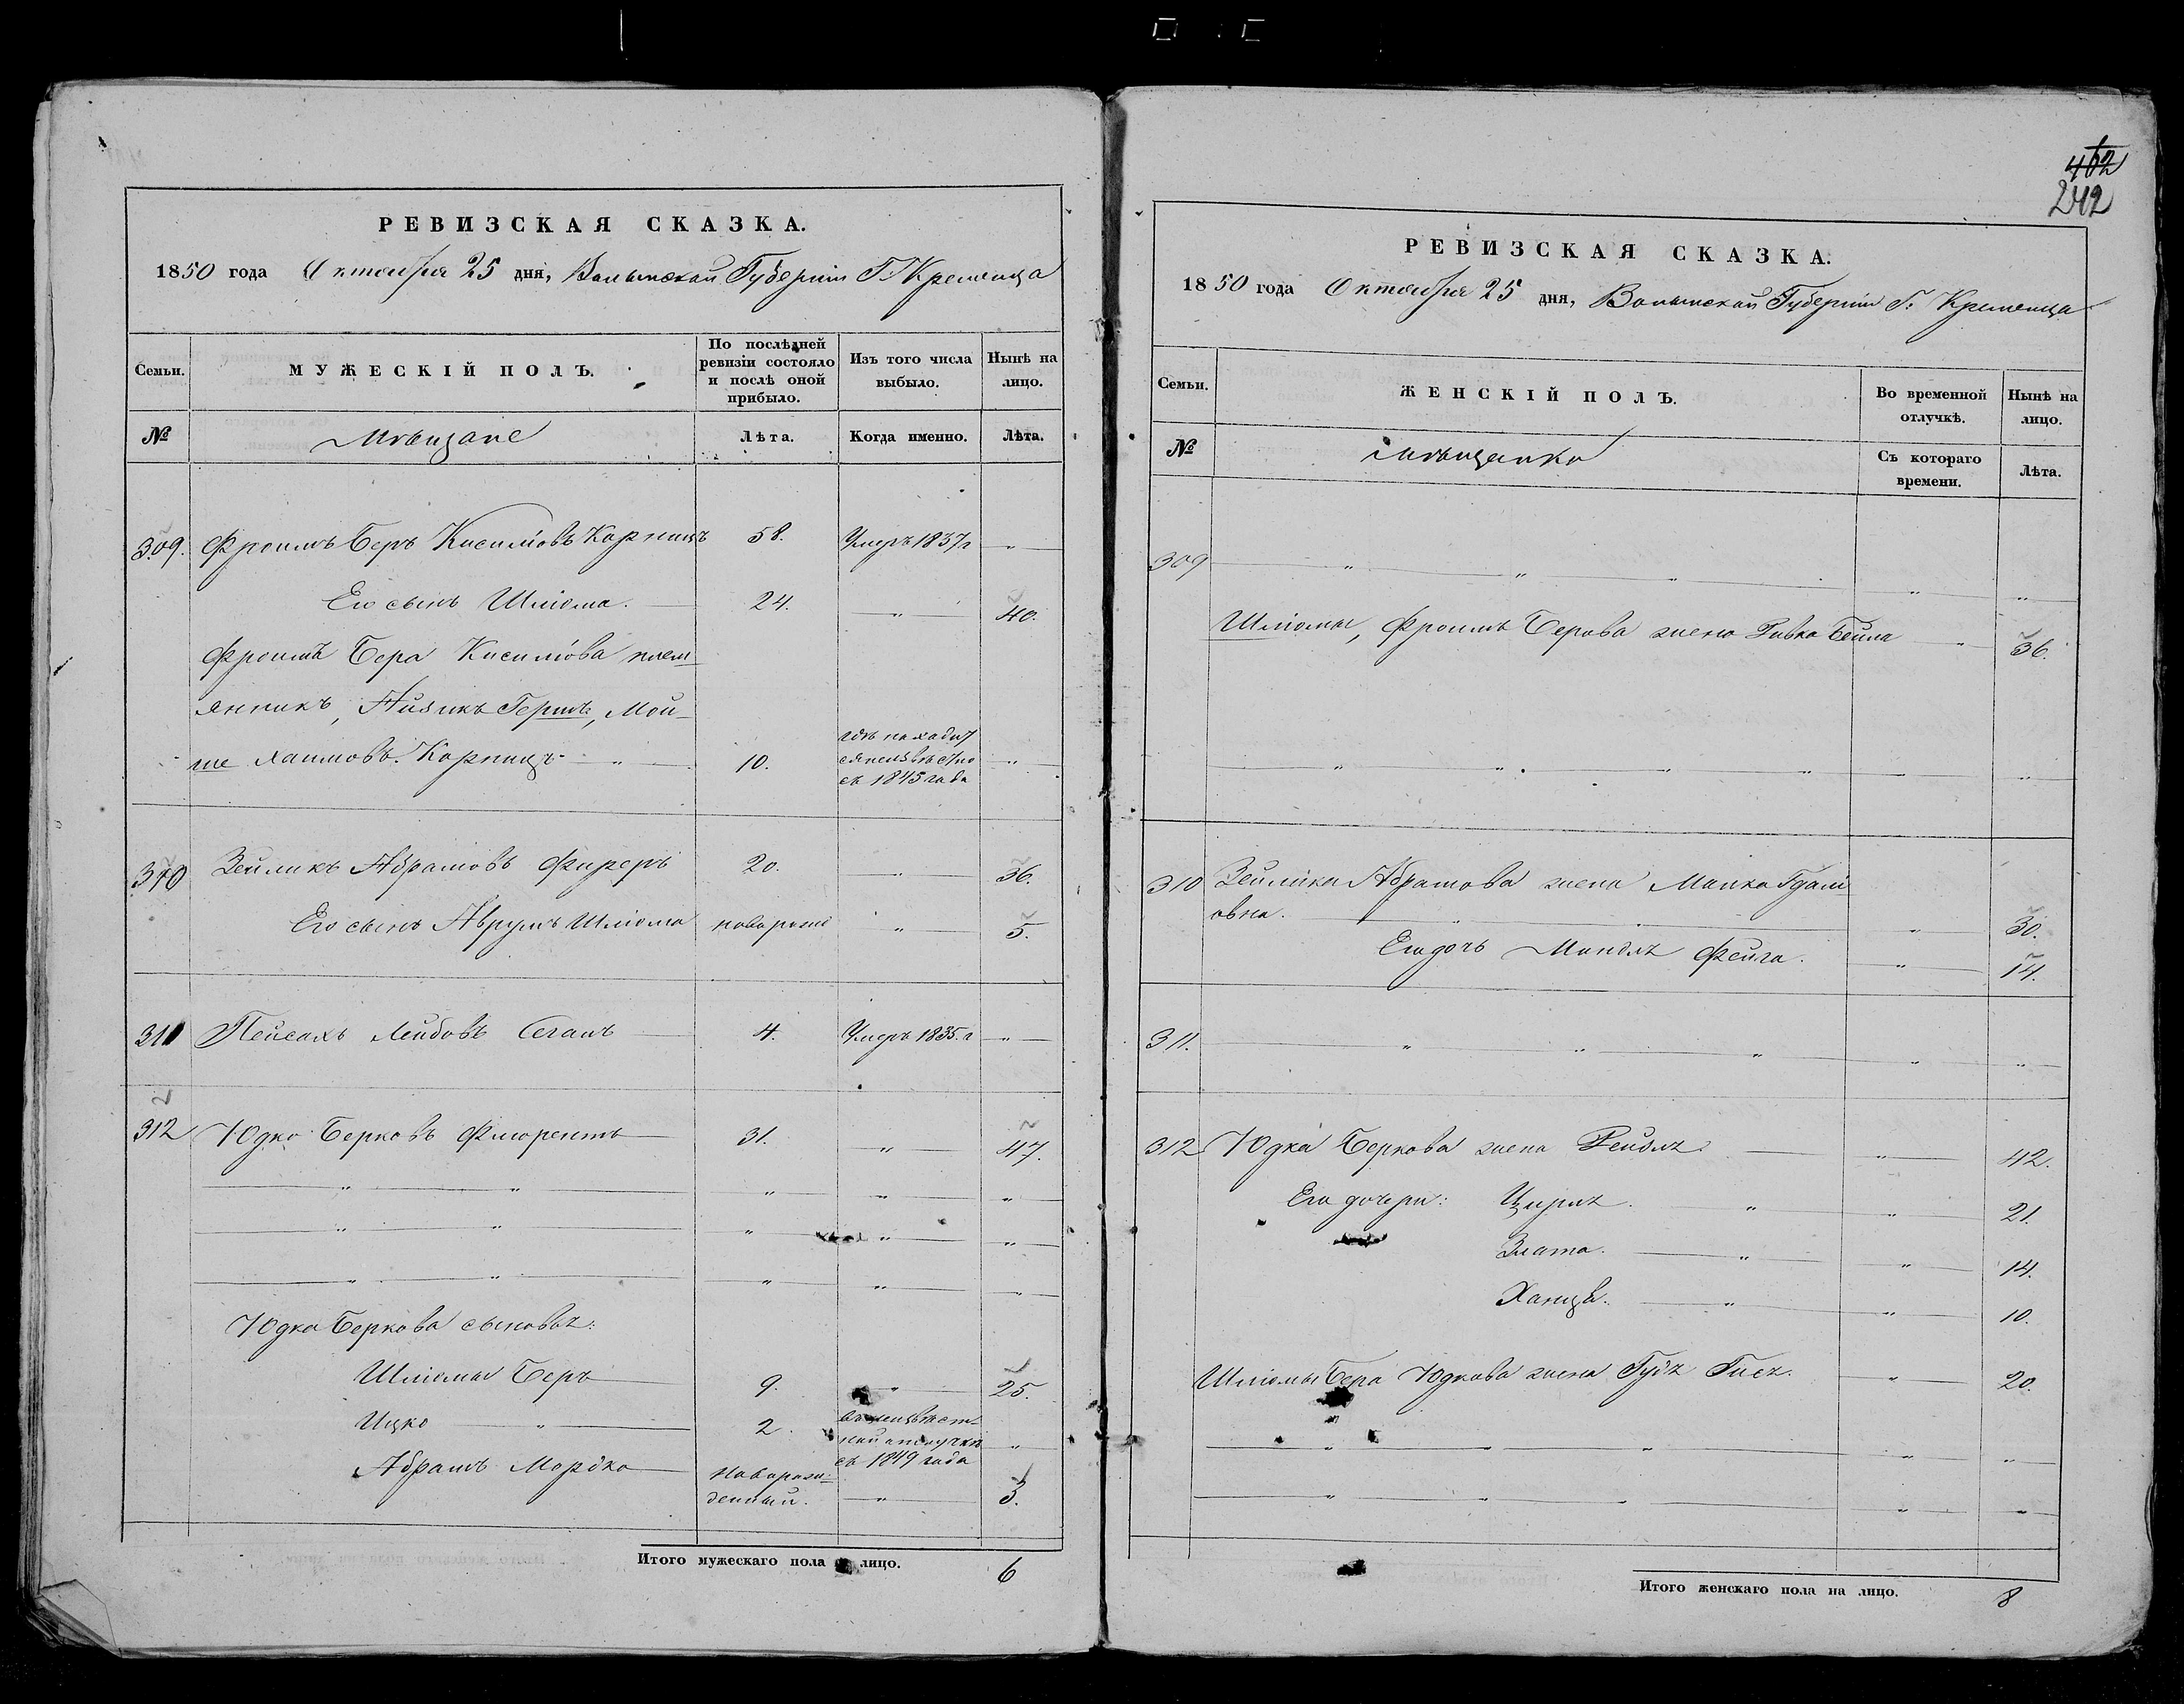 РЕВИЗСКАЯ СКАЗКА.
1850 года Октября 25 дня, Волынской Губерніи Г: Кременца
Семьи.
МУЖЕСКІЙ ПОЛЪ.
По послѣдней ревизіи состояло и послѣ оной прибыло.
Изъ того числа выбыло.
Нынѣ на лицо.
№
Мѣщане
Лѣта.
Когда именно.
Лѣта.
309. Фроимъ Беръ Кисилiовъ Корницъ 58. Умеръ 1837 г „
Его сынъ Шліома. 24. „ 40.
Фроимъ Бера Кисилiова плем-
янникъ, Айзикъ Гершъ, Мой-
ше Хаимовъ Корницъ „ 10. гдѣ находит
ся неизвѣстно
съ 1845 года „
310 Зейликъ Абрамовъ Фиреръ 20. „ 36.
Его сынъ Аврумъ Шліома новорожд „ 5.
311 Пейсахъ Лейбовъ Сеганъ 4. Умеръ 1835. г „
312 Юдко Берковъ 31. „ 47.
„ „ „ „ „
„ „ „ „ „
„ „ „ „ „
Юдка Беркова сыновья:
Шліома Беръ 9. „ 25.
Ицко „ 2. въ неизвѣст-
ной отлучкѣ
съ 1849 года „
Абрамъ Мордко Новорож-
денный. „ 3.
Итого мужескаго пола на лицо. 6
402
242
РЕВИЗСКАЯ СКАЗКА.
1850 года Октября 25 дня, Волынской Губерніи Г: Кременца
Семьи.
ЖЕНСКІЙ ПОЛЪ.
Во временной отлучкѣ.
Нынѣ на лицо.
№
Мѣщанки
Съ котораго времени.
Лѣта.
309 „ „ „ „ „
Шліомы, Фроимъ Берова жена Ривка Бейла „ 36.
„ „ „ „ „ „
310 Зейлика Абрамова жена Малка Гдаль
овна. „ „ „ 30.
Его дочь Миндля Фейга. „ 14.
311. „ „ „ „ „
312 Юдка Беркова жена Рейзля „ 42.
Его дочери: Цирля. „ „ 21.
Злата. „ „ 14.
Ханця. „ „ 10.
Шліомы Бера Юдкова жена Гудя Гися. „ 20.
„ „ „ „ „
„ „ „ „ „
Итого женскаго пола на лицо. 8